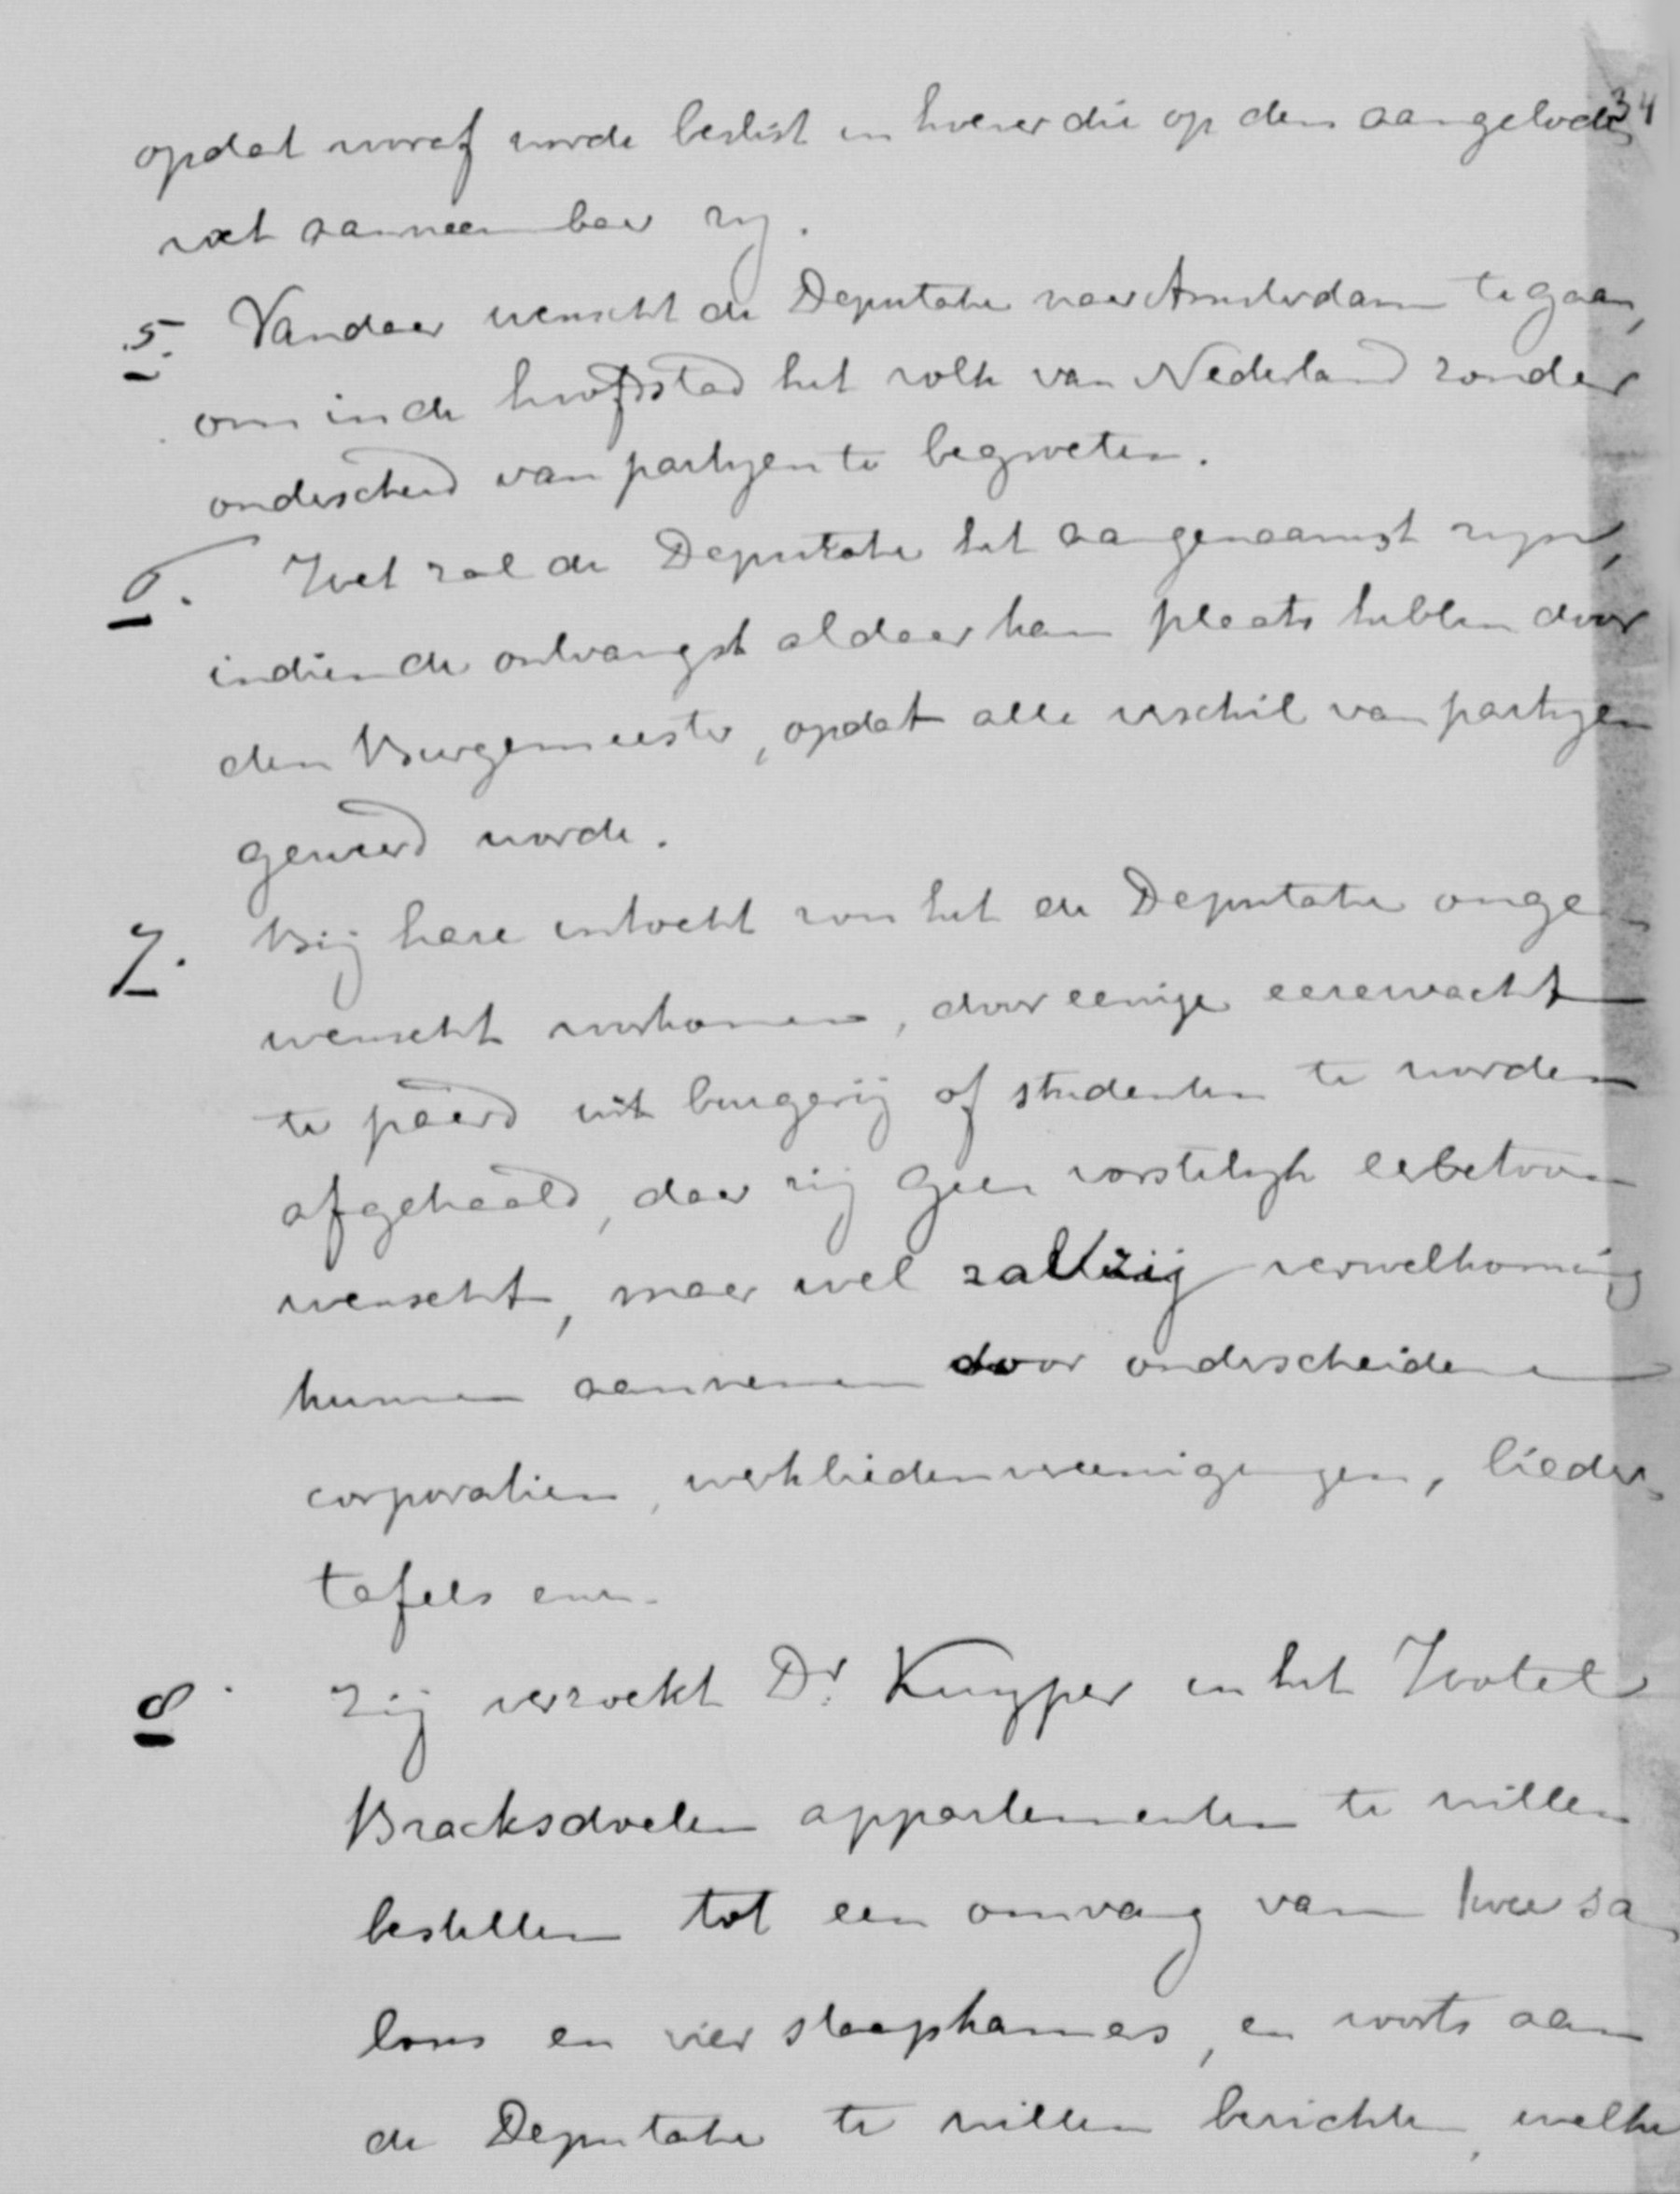 34
opdat vooraf worde beslist in hoeverre die op den aangeboden
voet aanneembaar zij.
5. Vandaar wenscht de Deputatie naar Amsterdam te gaan,
om in de hoofdstad het volk van Nederland zonder
onderscheid van partijen te begroeten.
6. Het zal de Deputatie het aangenaamst zijn,
indien de ontvangst aldaar kan plaats hebben door
den Burgemeester, opdat alle verschil van partijen
geweerd worde.
7. Bij hare intocht zou het de Deputatie onge-
wenscht voorkomen, door eenige eerewacht
te paard uit burgerij of studenten te worden
afgehaald, daar zij geen vorstelijk eerbetoon
wenscht, maar wel zal zij verwelkoming
kunnen aannemen door onderscheidene
corporatien, werkliedenvereenigingen, lieder-
tafels enz.
8. Zij verzoekt Dr. Kuyper in het Hotel
Bracksdoelen appartementen te willen
bestellen tot een omvang van twee sa-
lons en vier slaapkamers, en voorts aan
de Deputatie te willen berichten, welke